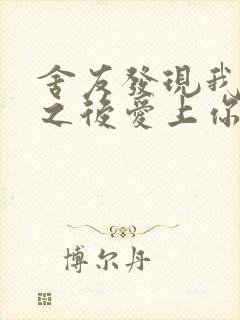 舍友發現我
之後愛上你
博尔丹